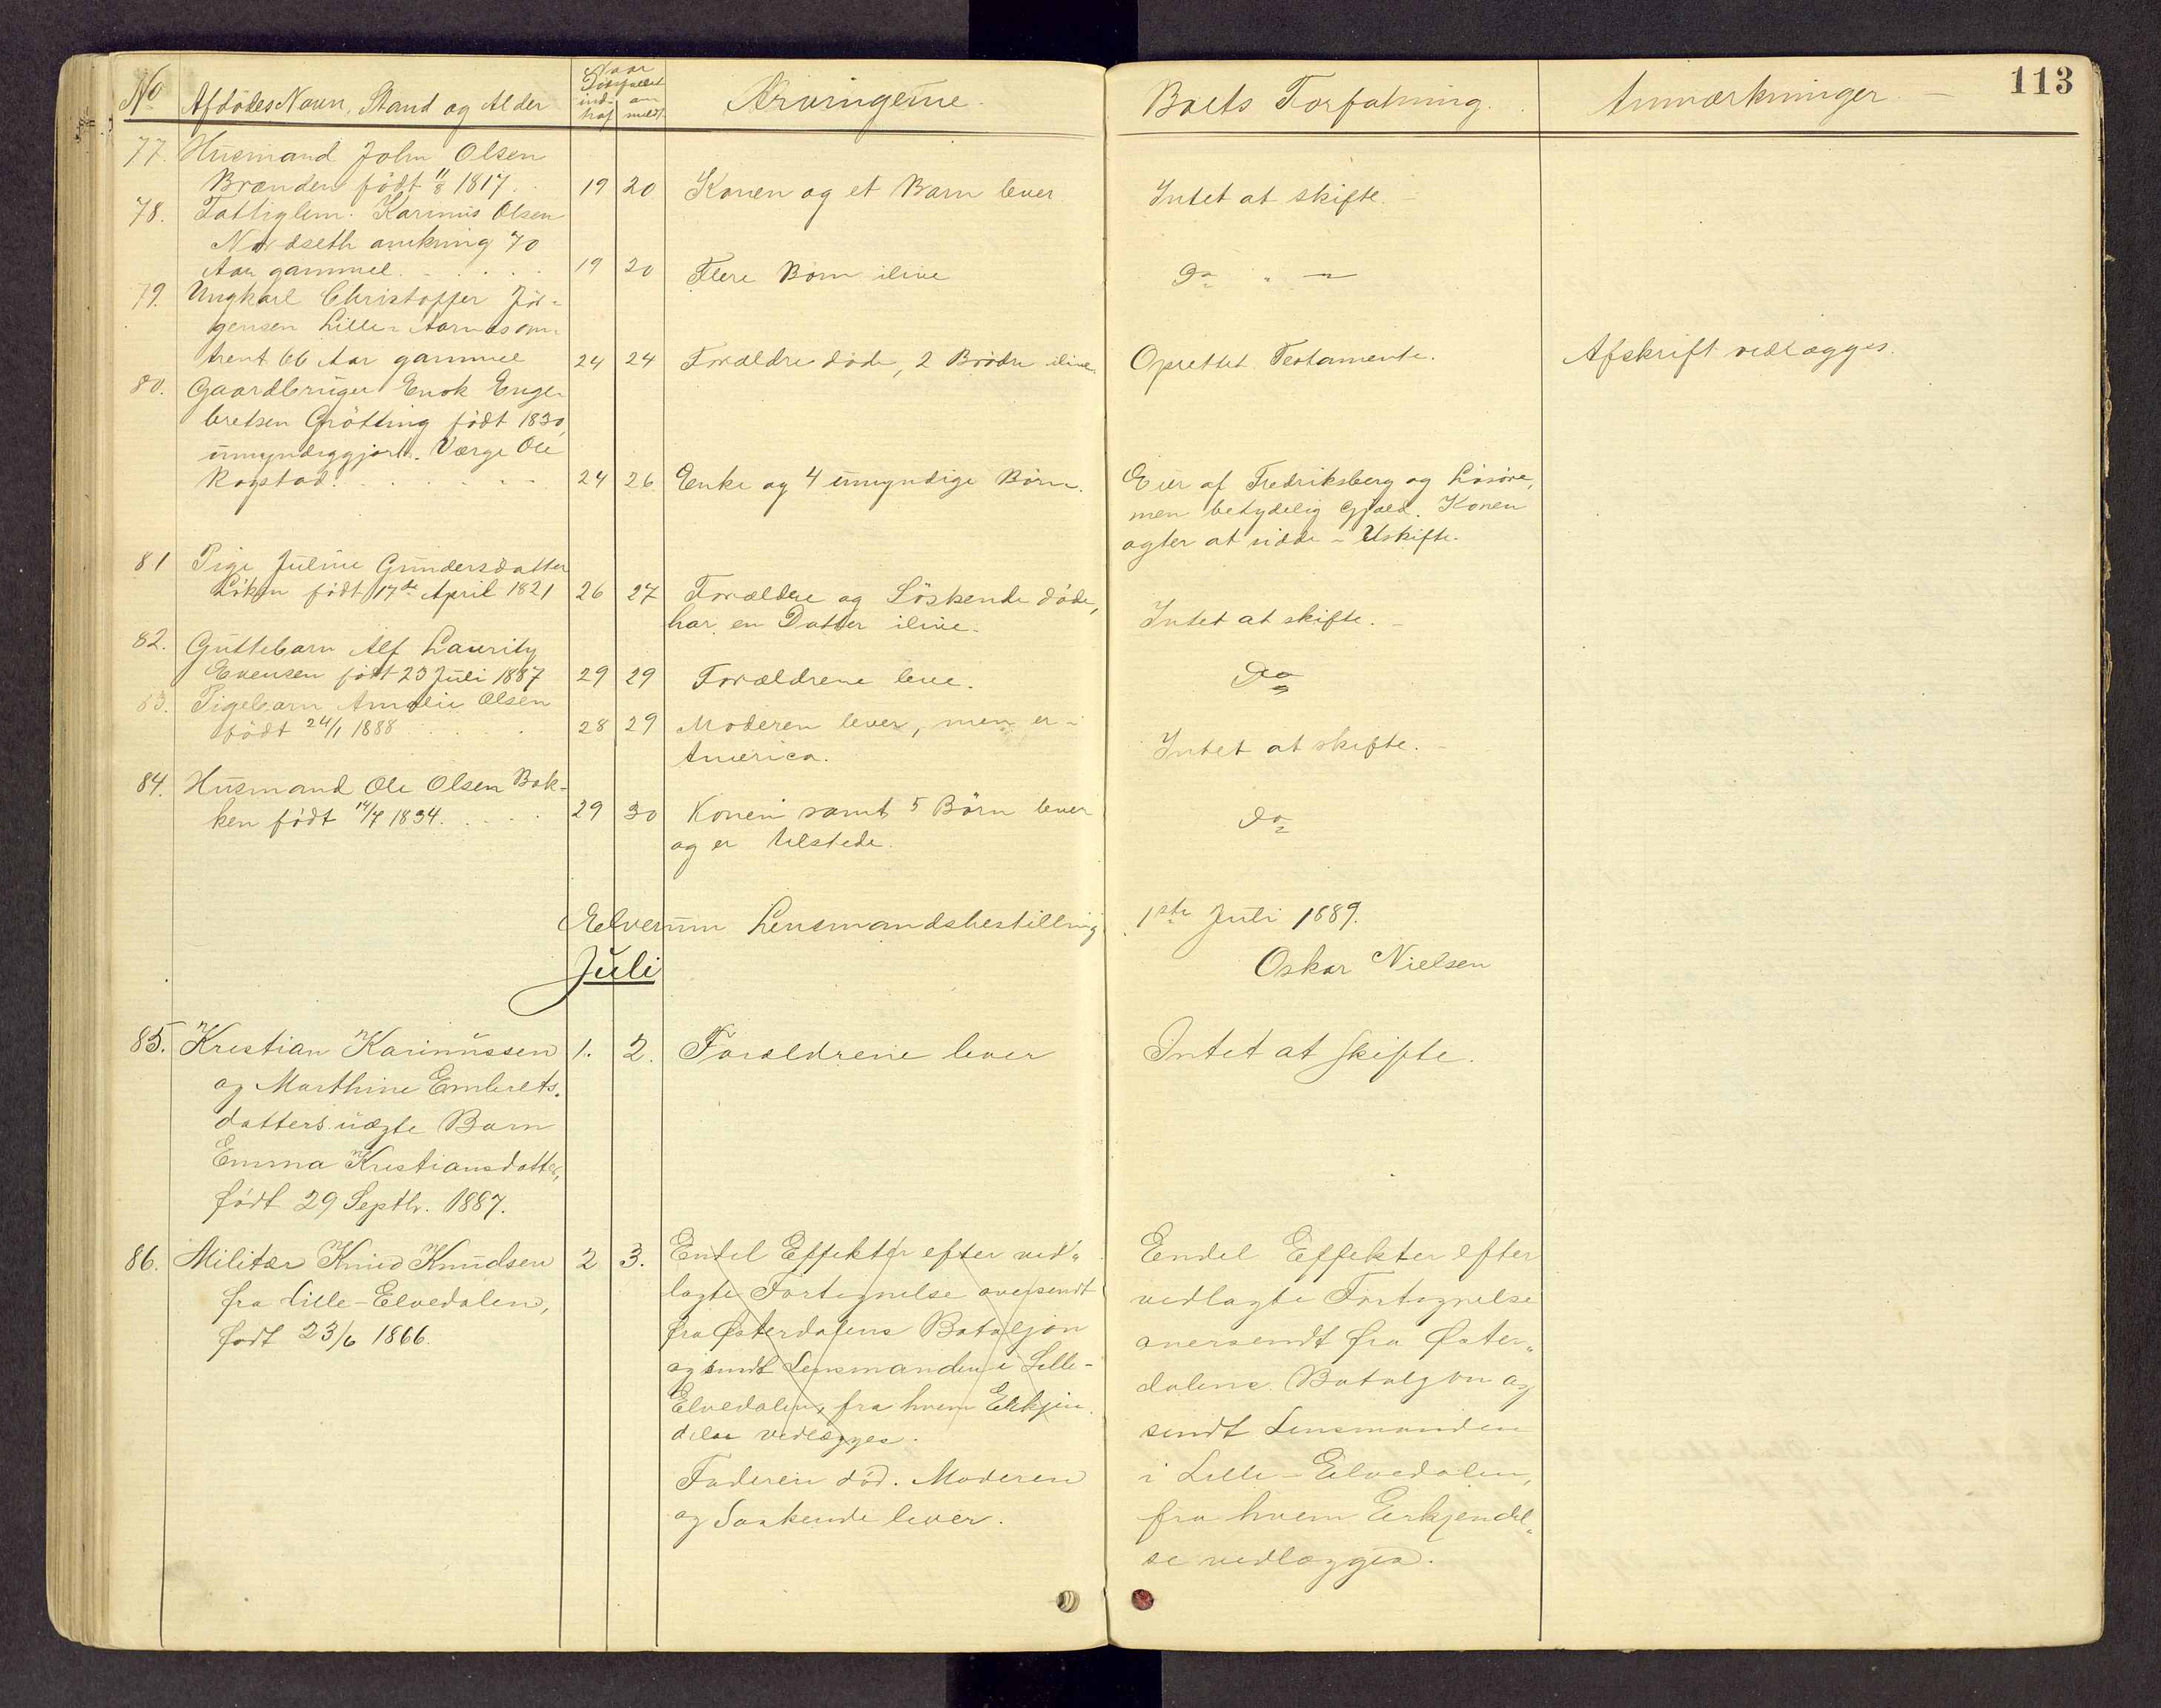 113
No Afdödes Navn, Stand og Alder Naar Dödsfaldet ind-traf anmeldt Arvingerne. Boets Forfatning. Anmærkninger
77. Husmand John Olsen
Branden födt 11/8 1817. 19 20 Konen og et Barn lever Intet at skifte.
78. Fattiglem. Karinus Olsen
Nordseth omkring 70
Aar gammel. 19 20 Flere Börn ilive Do " —
79. Ungkarl Christoffer Jör-
gensen Lille-Aarnæs om-
trent 66 Aar gammel 24 24 Forældre döde, 2 Brödre ilive. Oprettet Testamente. Afskrift vedlægges.
80. Gaardbruger Enok Enge-
bretsen Grötting födt 1830,
umyndiggjort. Værge Ole
Rogstad. 24 26 Enke og 4 umyndige Börn. Eier af Fredriksberg og Lösöre,
men betydelig Gjæld. Konen
agter at sidde i Uskifte.
81 Pige Juline Gundersdatter
Löken födt 17de April 1821 26 27 Forældre og Söskende döde,
har en Datter ilive. Intet at skifte.
82. Guttebarn Alf Lauritz
Evensen födt 23 Juli 1887 29 29 Forældrene leve. Do
83. Pigebarn Amalie Olsen
födt 24/1 1888 28 29 Moderen lever, men er i
America. Intet at skifte.
84. Husmand Ole Olsen Bak-
ken födt 14/7 1834. 29 30 Konen samt 5 Börn lever
og er tilstede. Do
Elverum Lensmandsbestilling 1ste Juli 1889.
Oskar Nielsen
Juli
85. Kristian Karinussen 1. 2. Forældrene lever Intet at skifte.
og Marthine Embrets-
datters uægte Barn
Emma Kristiansdatter,
födt 29 Septbr. 1887.
86. Militær Knud Knudsen 2 3.
fra Lille-Elvedalen,
födt 23/6 1866.
Endel Effekter efter ved-
lagte Fortegnelse oversendt
fra Østerdalens Bataljon
og sendt Lensmanden i Lille-
Elvedalen, fra hvem Erkjen-
delse vedlægges.
Faderen död. Moderen
og Söskende lever.
Endel Effekter efter
vedlagte Fortegnelse
oversendt fra Øster-
dalens Bataljon og
sendt Lensmanden
i Lille-Elvedalen,
fra hvem Erkjendel-
se vedlægges.